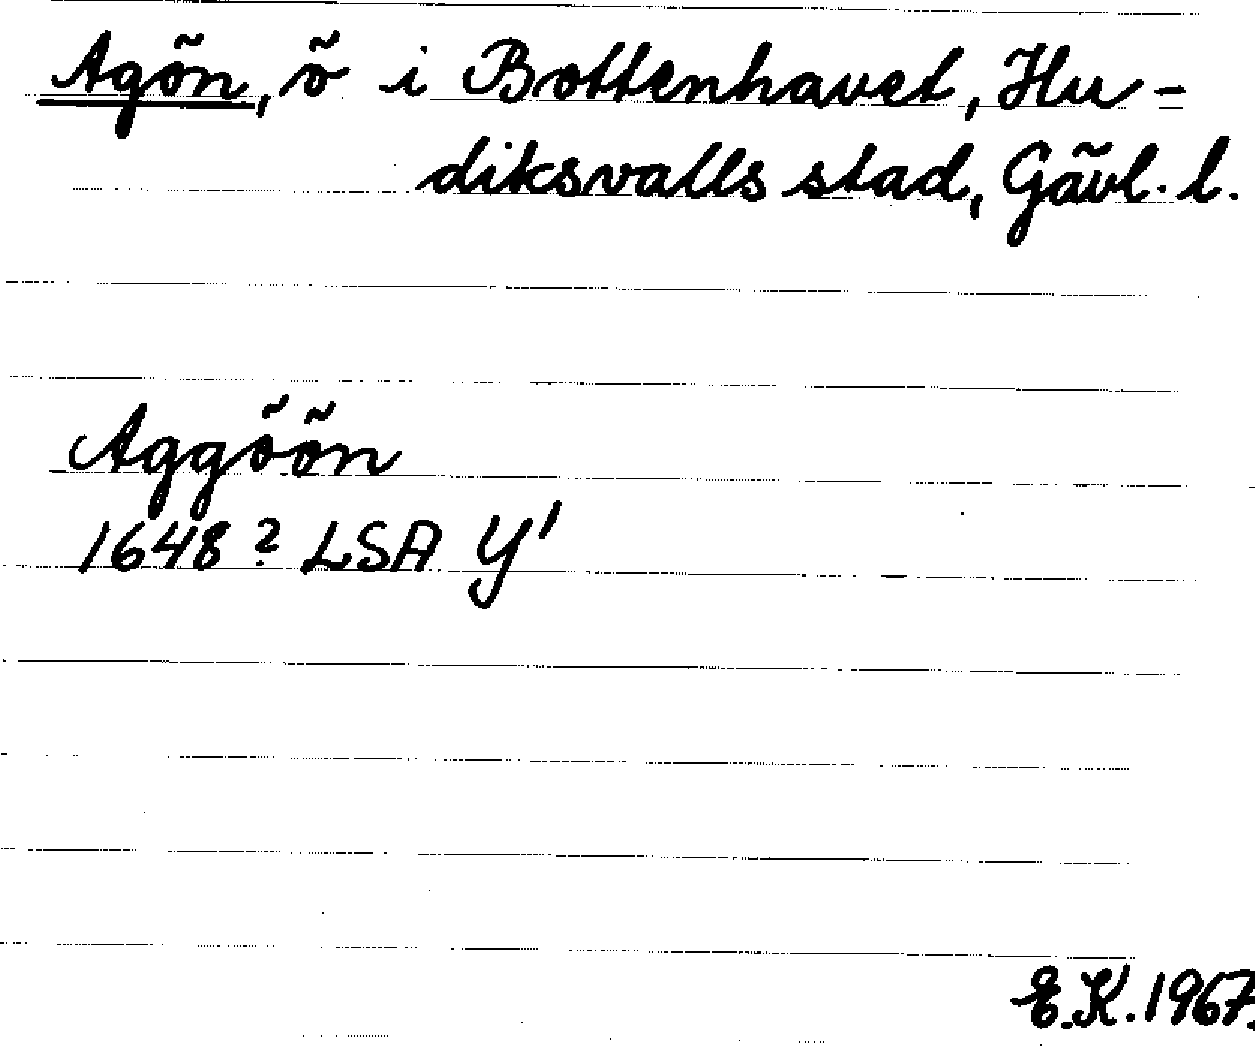 Agön, ö i Bottenhavet, Hu-
diksvalls stad, Gävl. l.
Aggöön
1648? LSA Y1
E.K. 1967.